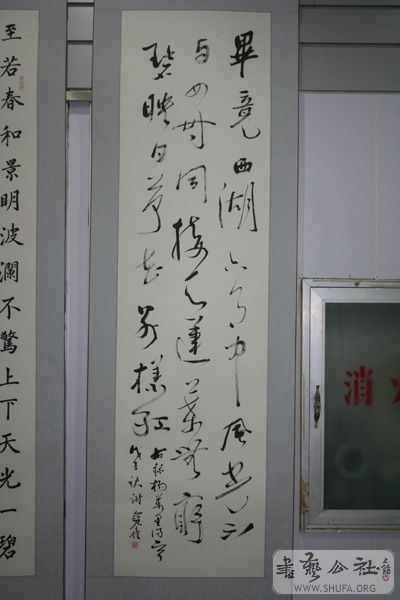 畢竟西湖六月中風光不
与四時同接天蓮葉無窮
碧映日荷花别樣紅
楊萬里诗
戊子秋
至若春和景明波瀾不驚上下天光一碧
消
書藝公社
WWW.SHUFA.ORG